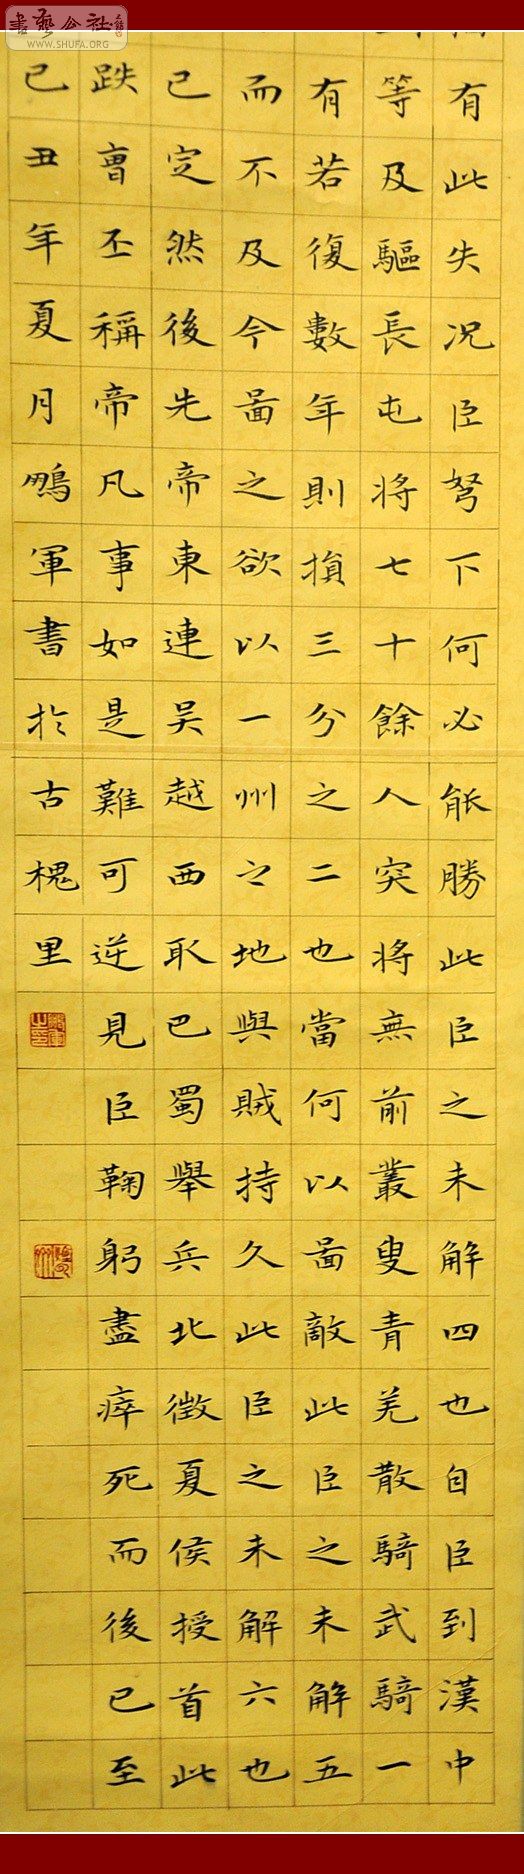 書藝公社
WWW.SHUFA.ORG
有此失况臣弩下何必能勝此臣之未解四也自臣到漢中
等及驅長屯將七十餘人突將無前叢叟青羌散騎武騎一
有若復數年則損三分之二也當何以啚敵此臣之未解五
而不及今啚之欲以一州之地與賊持久此臣之未解六也
已定然後先帝東連吴越西取巴蜀舉兵北徴夏侯授首此
跌曺丕稱帝凡事如是難可逆見臣鞠躬盡瘁死而後已至
己丑年夏月鵬軍書於古槐里